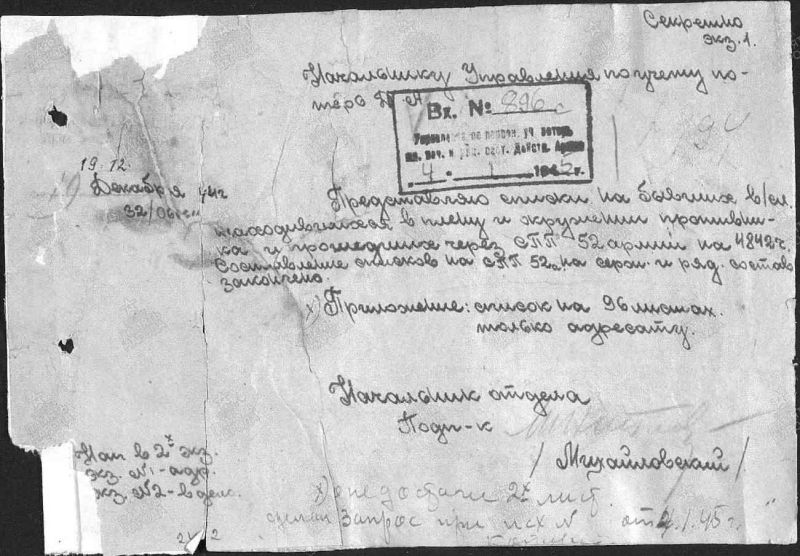 Секретно
экз. 1.
Начальнику Управления по учету по-
терь
Вх. № 896 с
Управление по персон. уч. потерь
Действ. Армии
4 1 1945 г.
19.12.
Декабря 44г
32/06
Представляю списки на бывших в/сл.
находившихся в плену и окружении противни-
ка и прошедших через СПП 52 армии на 4842 ч.
Составление списков на СПП 52а. на серж. и ряд. состав
закончено.
х) Приложение: список на 96 листах.
только адресату.
Начальник отдела
Подп-к
/Михайловский/
Нап в 2х экз.
экз. №1-адр.
экз. №2-в дело.
х) о недостаче 2х лист.
сделан запрос при исх N от 4.1.45 г.